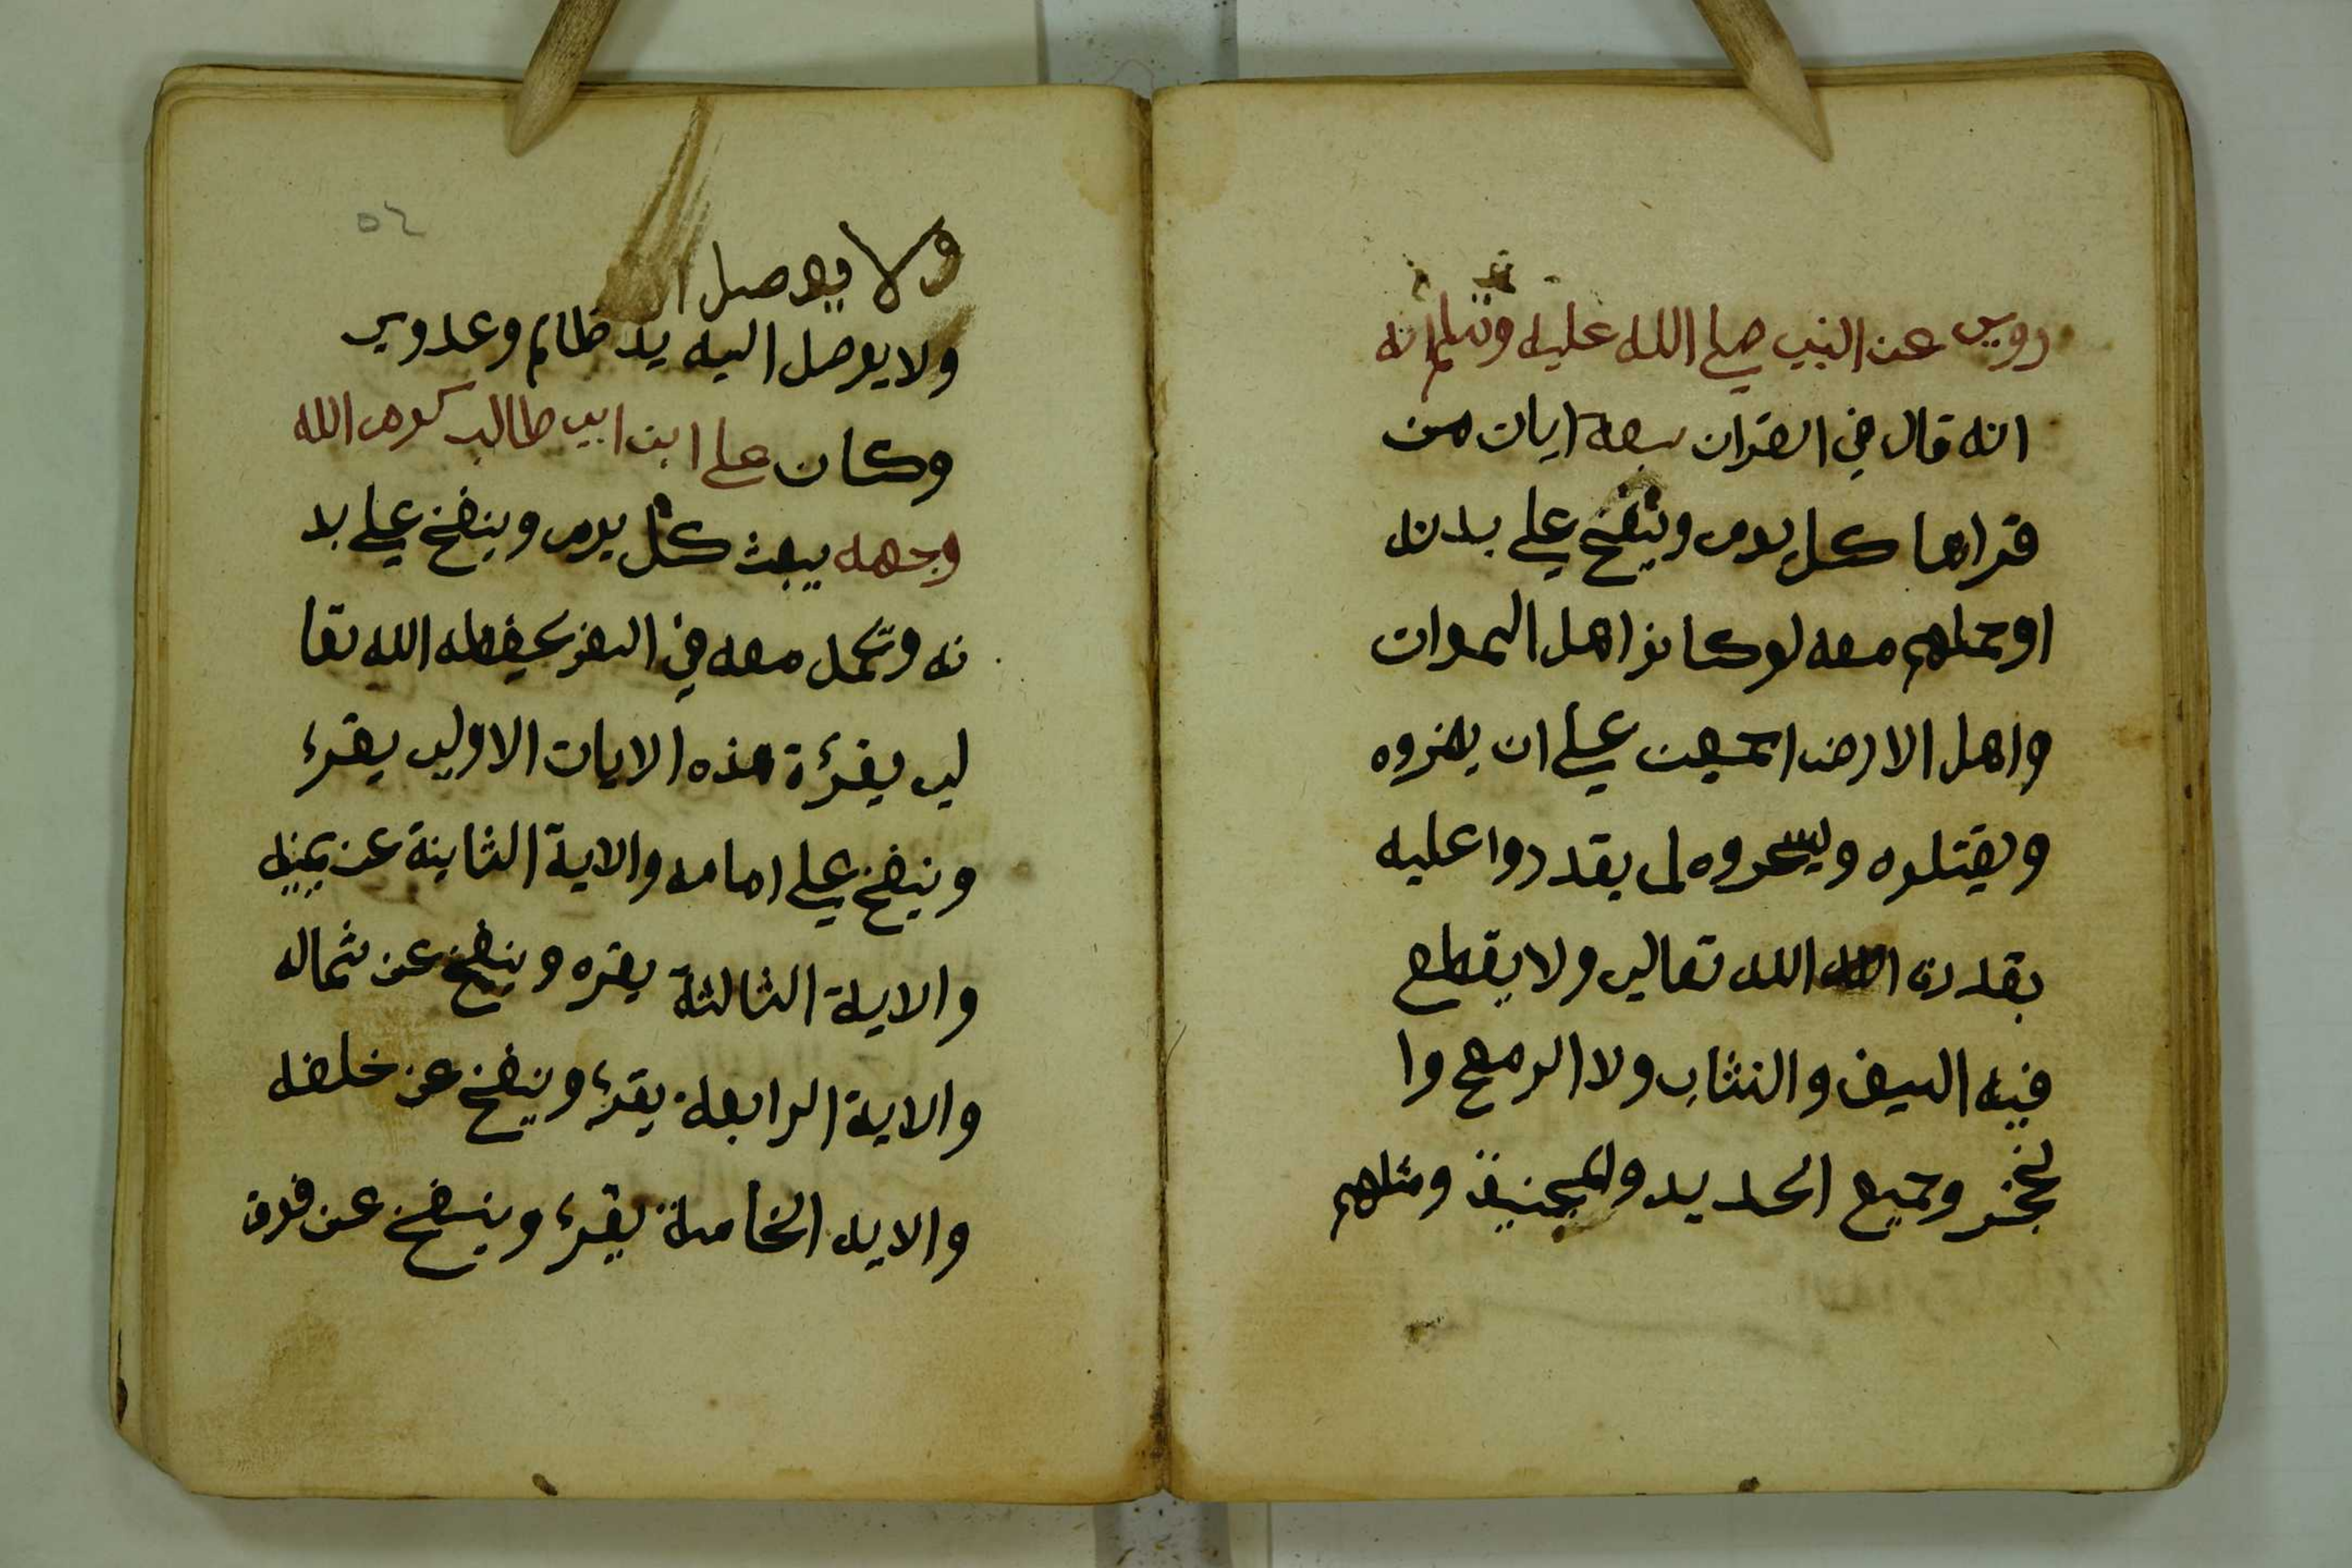 روي عن النبي صلي الله عليه وسلم انه
انه قال في القران سبعة ايات من
قراها كل يوم وينفخ علي بدنه
اوحملهم معه لوكانوا اهل السموات
واهل الارض اجمعين علي ان يضروه
ويقتلوه ويسحروه لم يقدروا عليه
بقدرة الله الله تعالي ولا يقطع
فيه السيف والنشاب ولا الرمح وا
لخنجر وجميع الحديد والمنجنيق ومثلهم
٥٤
ولا يوصل ال
ولا يوصل اليه يد ظالم وعدوي
وكان علي ابن ابي طالب كرم الله
وجهه يبعث كل يوم وينفخ علي بد
نه وتحمل معه في السفر يحفظه الله تعا
لي يقرءة هذه الايات الاولي يقرء
وينفخ علي امامه والاية الثانية عن يمينه
والاية الثالثة يقره وينفخ عن شماله
والاية الرابعة يقرء وينفخ عن خلفه
والايه الخامسة يقرء وينفخ عن فوق